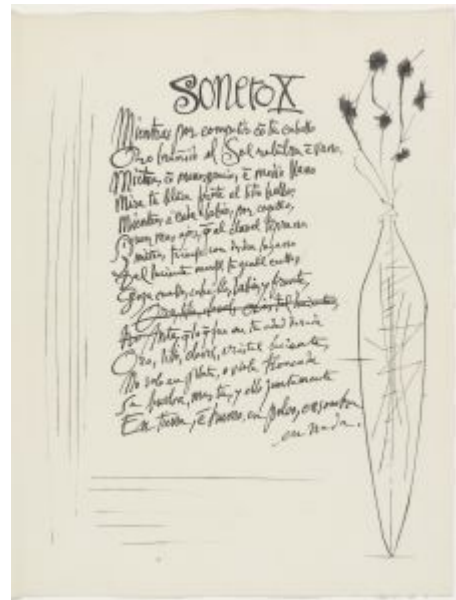 Soneto X
Mientras por competir cō tu cabello
Oro bruñido el Sol relumbra ē vano,
Mientras cō menosprecio, ē medio llano
Mira tu blāca frente el lilio bello,
Mientras a cada labio, por cogello,
Siguen mas ojos, q al clavel temprano
mientras triunfa con desden loçano
el luciente tu gentil cuello,
Goza cuello, cabello, labio, y frente,
Antes q lo q fue en tu edad dorada
Oro, lilio, clavel, cristal luciente,
No solo en plata, o viola troncada
Se buelva, mas tu, y ello juntamente
En tierra, ē humo, en polvo, en sombra
en nada.